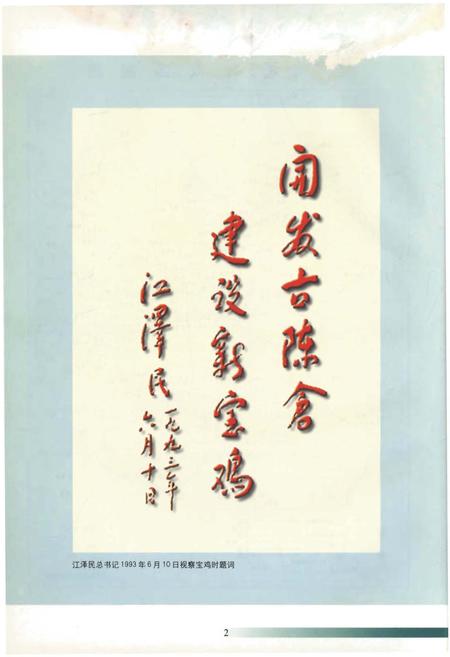 开发古陈仓
建设新宝鸡
江泽民
一九九三年
六月十日
江泽民总书记1993年6月10日视察宝鸡时题词
2